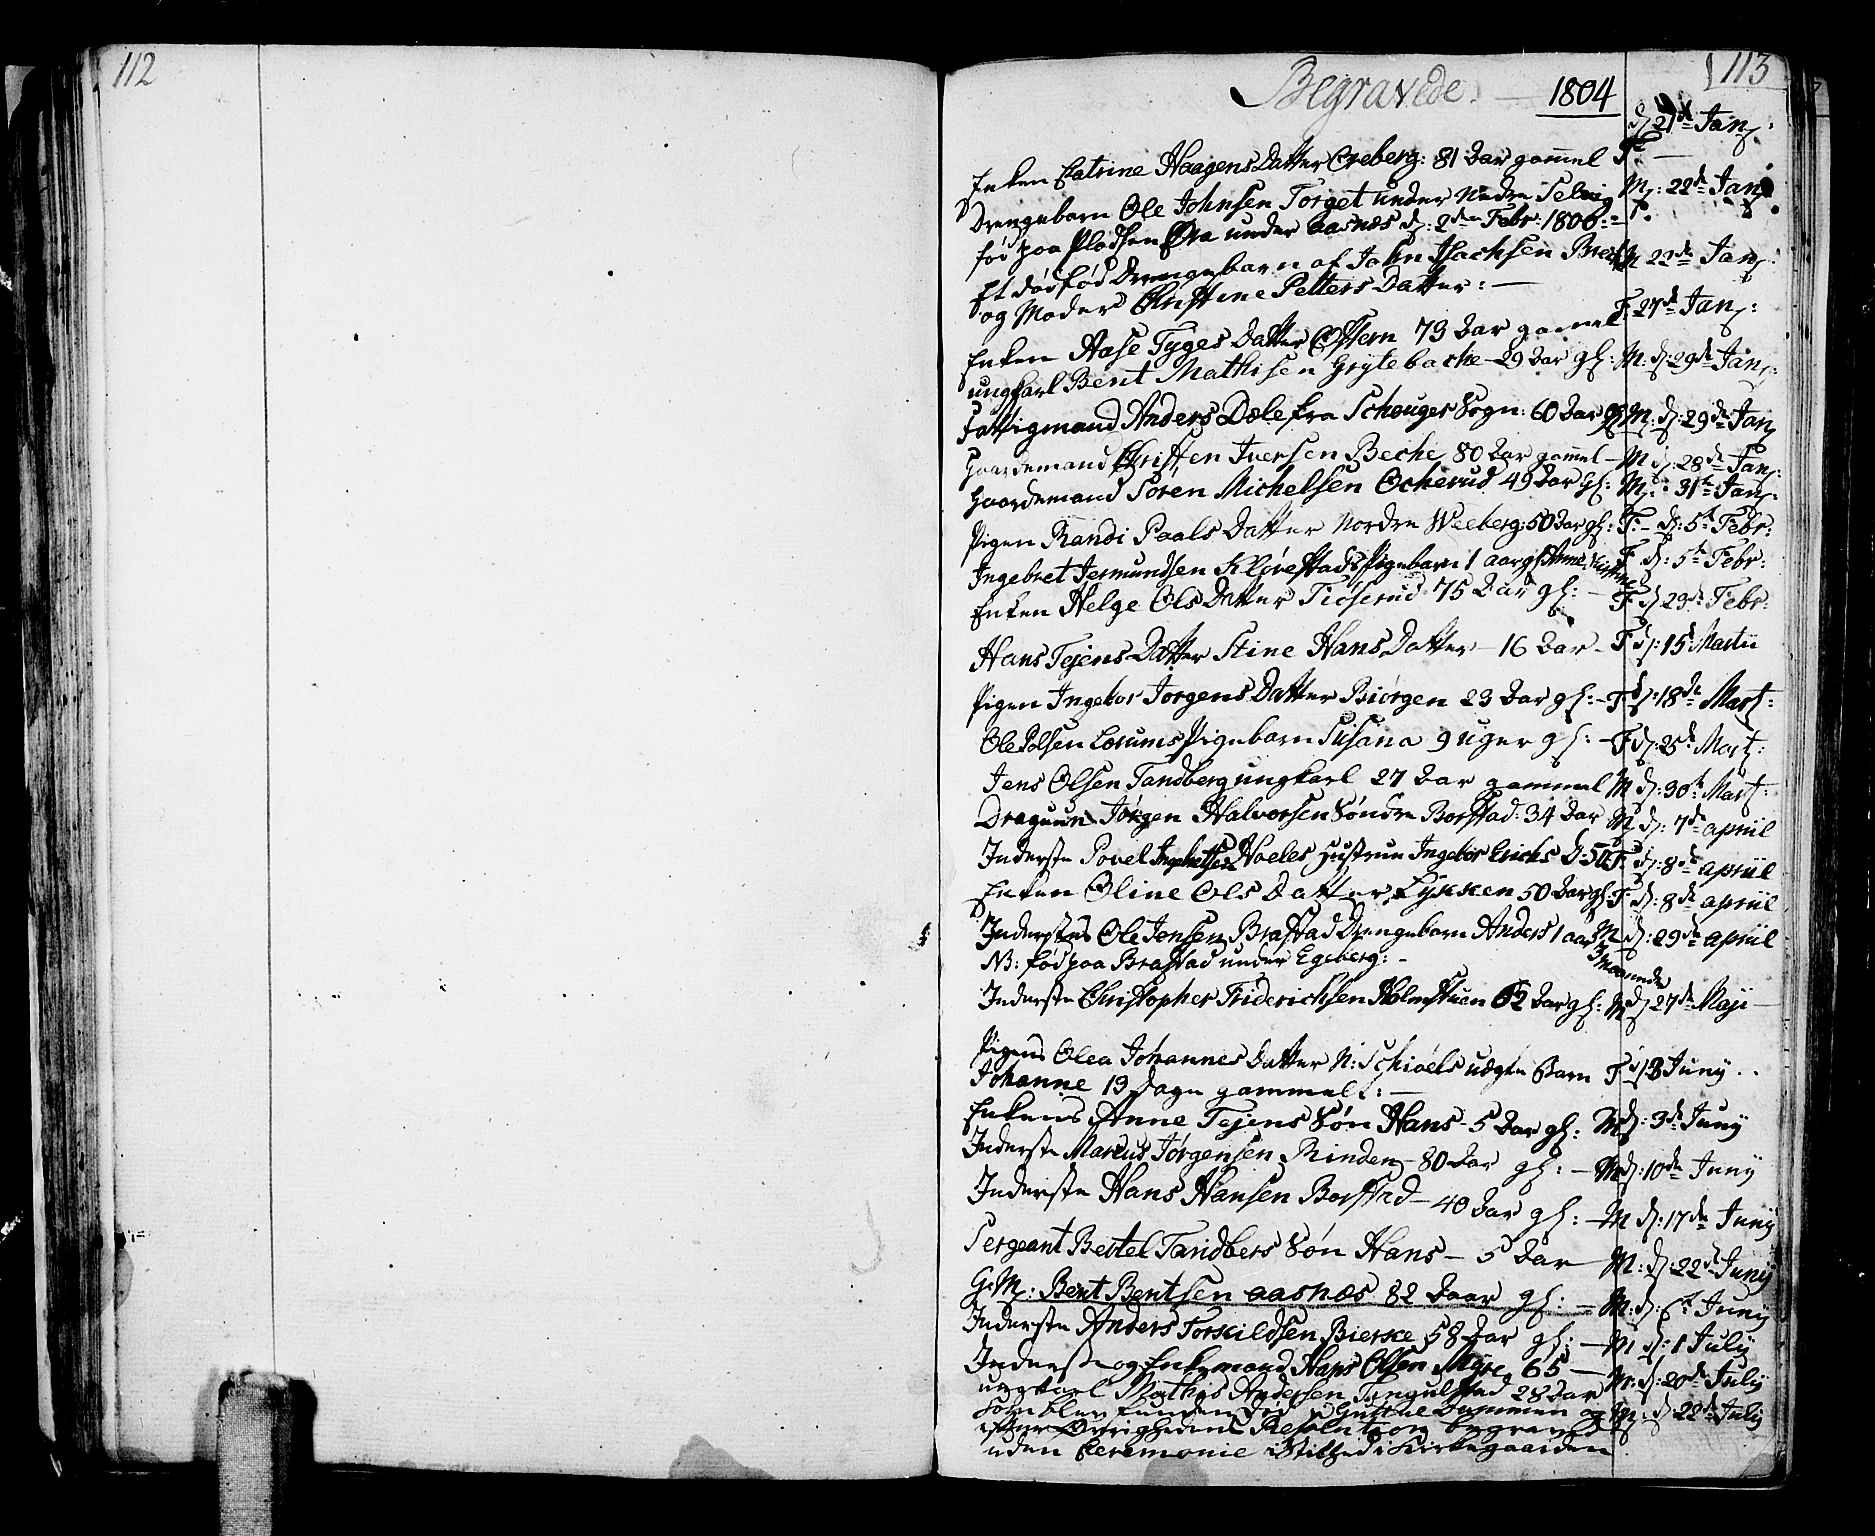 112
113
Begravede. — 1804
Enken Catrine Haagens Datter Egeberg: 81 Aar gam̄el F. — d: 21de Janr:
Drengebarn Ole Johnsen Torget under Nedre Selvig Mr: 22de Janr:
fød paa Pladsen Øra under aasnæs d: 2den Febr: 1800. =
Et dødfød Drengebarn af John Isachsen M 22de Janr:
og Moder Christine Petters Datter: —
Enken Aase Tyges Datter Østern 73 Aar gamel F. 27de Janr:
ungkarl Bent Mathisen Grytebache 29 Aar gl: M: d: 29de Janr:
Fattigmand Anders Dæle fra Schouger Sogn: 60 Aar gl: M: d: 29de Janr
Gaardemand Christen Iversen Beche 80 Aar gamel — M d: 28de Janr:
Gaardemand Søren Michelsen Ocherud 49 Aar gl: Mr: 31te Janr:
Pigen Randi Paals Datter Nordre Weeberg: 50 Aar gl: F: — d: 5te Febr:
Ingebret Jermundsen Kjørestads Pigebarn 1 aar gl Anne Kirstine F d: 5te Febr:
Enken Helge Ols Datter Tiøserud 75 Aar gl: — F d: 23de Febr:
Hans Tejens Datter Stine Hans Datter — 16 Aar — F d: 15de Martii
Pigen Ingebor Jørgens Datter Biørgen 23 Aar gl: — F d: 18de Mart:
Ole Polsen Lørums Pigebarn Susana 9 uger gl: — F d: 25de Mart:
Jens Olsen Tandberg ungkarl 27 Aar gammel M d: 30te Mart:
Draguun Jørgen Halvorsen Søndre Borstad: 34 Aar M d: 7de apriil
Inderste Povel Ingebretsen Hoeles Hustrue Ingebor Erichs D: 50 F. d: 8de apriil
Enken Oline Ols Datter Lykken 50 Aar gl: F. d: 8de apriil
Inderstes Ole Jensen Brastad Drengebarn Anders 1 aar 3 maaneder M d: 29de apriil
NB: fød paa Brastad under Egeberg: —
Inderste Christopher Friderichsen Holmstuen 62 Aar gl: M d: 27de Maji
Pigens Olea Johannes Datter N: Schiøels uægte Barn F d: 3 Junij
Johanne 19 Dage gammel: —
Enkens Anne Tejens Søn Hans — 5 Aar gl: M d: 3de Junij
Inderste Marcus Jørgensen Rinden — 80 Aar gl: — M d: 10de Junij
Inderste Hans Hansen Borstad — 40 Aar gl: — M d: 17de Junij
Sergeant Bertel Tandbers Søn Hans — 5 Aar — M: d: 22de Junij
G: M: Bent Bentsen aasnæs 82 Aaar gl: = M: d: 6te Junij
Inderste Anders Torkildsen Bierke 58 Aar gl: — M d: 1 Julij
Inderste og Enkemand Hans Olsen Myre 65 — M: d: 20de Julij
ungkarl Mathis Andersen Tingulstad 28 Aar M: d: 22de Julij
som blev funden død i Dammen og
efter Øvrighedens Resolution begravet
uden Ceremonie i Stilhed i Kirkegaarden